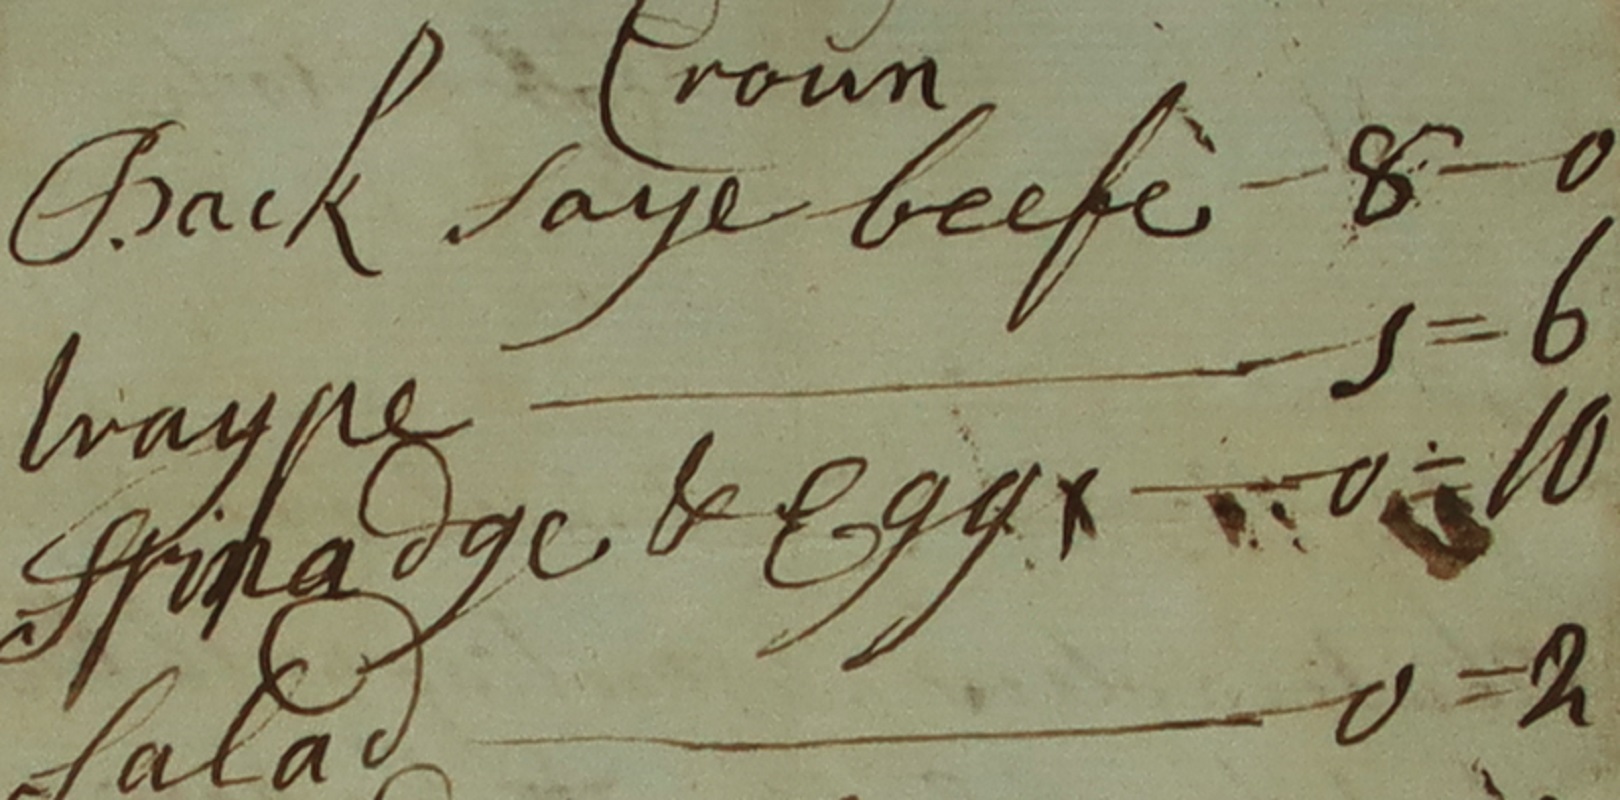 Croun
Back saye beefe - 8 - 0
traype - s = 6
Spinadge & Eggs - 0 = 10
Salad - 0 = 2